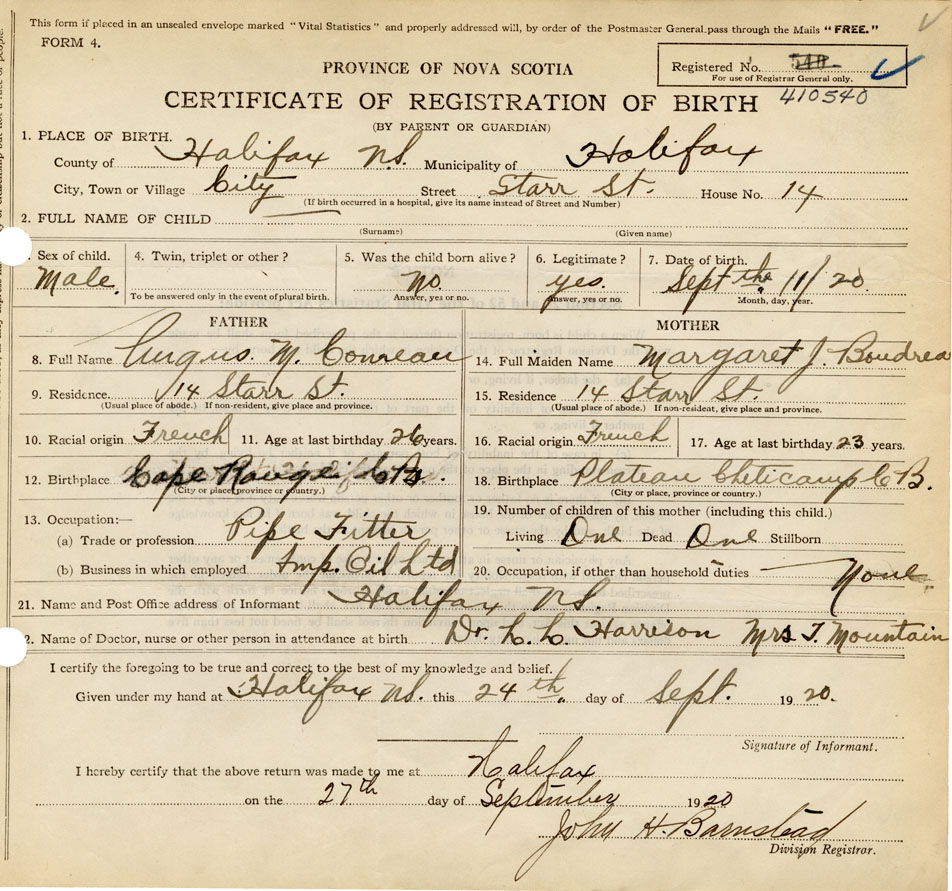 This form if placed in an unsealed envelope marked "Vital Statistics" and properly addressed will, by order of the Postmaster General, pass through the Mails "FREE."
FORM 4.
PROVINCE OF NOVA SCOTIA
Registered No. 540
For use of Registrar General only.
CERTIFICATE OF REGISTRATION OF BIRTH 410540
(BY PARENT OR GUARDIAN)
1. PLACE OF BIRTH.
County of Halifax N.S. Municipality of Halifax
City, Town or Village City Street Starr St. House No. 14
(If birth occurred in a hospital, give its name instead of Street and Number)
2. FULL NAME OF CHILD
(Surname) (Given name)
Sex of child. 4. Twin, triplet or other? 5. Was the child born alive? 6. Legitimate? 7. Date of birth.
Male. No. yes. Sept the 11/20
To be answered only in the event of plural birth. Answer, yes or no. Answer, yes or no. Month, day, year.
FATHER MOTHER
8. Full Name Angus. M. Comeau 14. Full Maiden Name Margaret J. Boudrea
9. Residence. 14 Starr St. 15. Residence 14 Starr St.
(Usual place of abode.) If non-resident, give place and province. (Usual place of abode.) If non-resident, give place and province.
10. Racial origin French 11. Age at last birthday 26 years. 16. Racial origin French 17. Age at last birthday 23 years.
12. Birthplace Cape Rouge C.B. 18. Birthplace Plateau Cheticamp C B.
(City or place, province or country.) (City or place, province or country.)
13. Occupation:— 19. Number of children of this mother (including this child.)
(a) Trade or profession Pipe Fitter Living One Dead One Stillborn
(b) Business in which employed Imp. Oil Ltd 20. Occupation, if other than household duties None
21. Name and Post Office address of Informant Halifax N.S.
2. Name of Doctor, nurse or other person in attendance at birth Dr. Harrison Mrs T. Mountain
I certify the foregoing to be true and correct to the best of my knowledge and belief.
Given under my hand at Halifax N.S. this 24th. day of Sept. 1920.
Signature of Informant.
I hereby certify that the above return was made to me at Halifax
on the 27th day of September 1920
John H. Barnstead
Division Registrar.